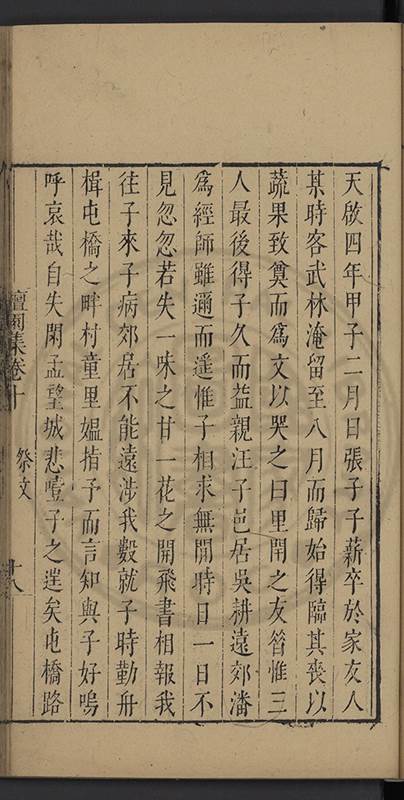 天啟四年甲子二月日張子子薪卒於家友人
某時客武林淹留至八月而歸始得臨其喪以
蔬果致奠而為文以哭之曰里閈之友昝惟三
人最後得子久而益親汪子邑居吳耕遠郊潘
為經師雖邇而遥惟子相求無間時日一日不
見忽忽若失一味之甘一花之開飛書相報我
往子來子病郊居不能遠涉我數就子時勤舟
楫屯橋之畔村童里媼指予而言知與子好嗚
呼哀哉自失閑孟望城悲噎子之逞矣屯橋路
檀園集卷十
祭文
十八